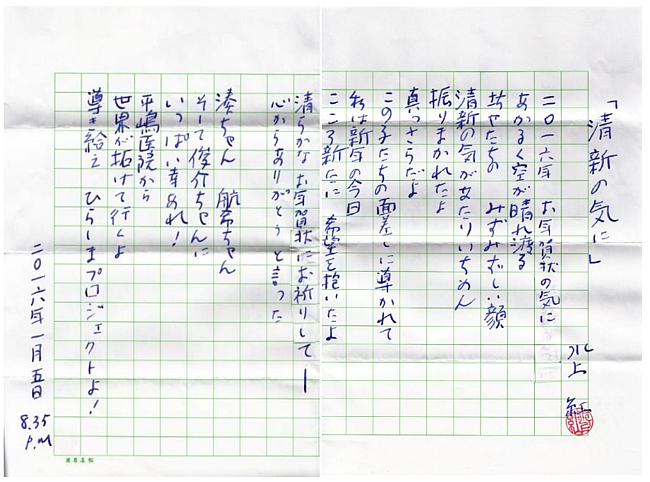 「清新の気に」
水上 紅
二〇一六年 お年賀状の気に
あかるく空が晴れ渡る
坊やたちの みずみずしい顔
清新の気があたりいちめん
振りまかれたよ
真っさらだよ
この子たちの面差しに導かれて
私は新年の今日
こころ新たに 希望を抱いたよ
清らかな お年賀状にお祈りして―
心からありがとう と言った
湊ちゃん 航希ちゃん
そして俊介ちゃんに
いっぱい幸あれ!
平嶋医院から
世界が拓けて行くよ
導き給え ひらしまプロジェクトよ!
二〇一六年一月五日
8.35
P.M